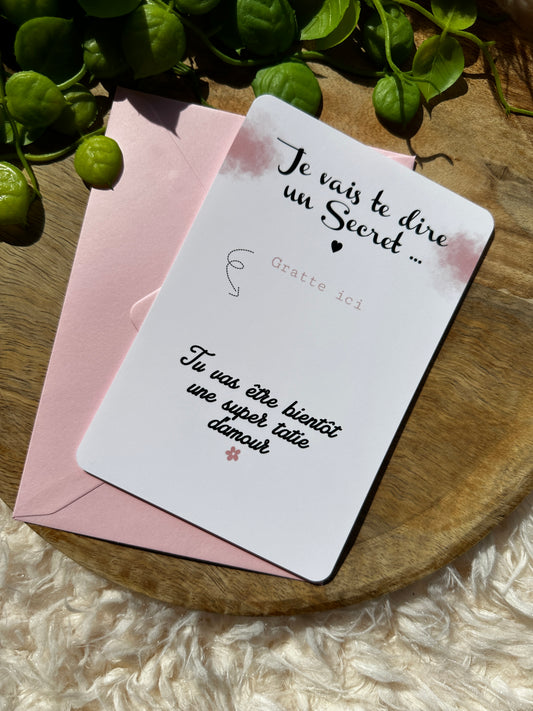 Je vais te dire
un Secret ...
Gratte ici
Tu vas être bientôt
une super tatie
d'amour